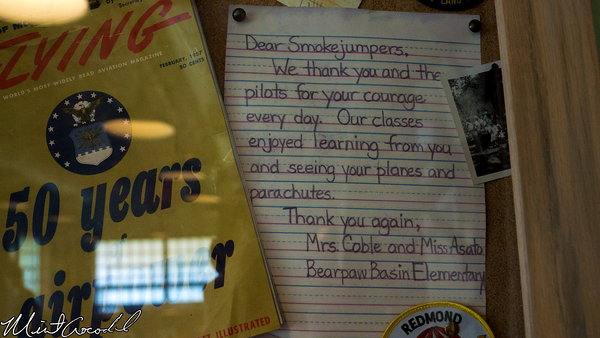 FLYING
WORLD'S MOST WIDELY READ AVIATION MAGAZINE
FEBRUARY, 1957
50 CENTS
50 years
of
airpower
ILLUSTRATED
Dear Smokejumpers,
We thank you and the
pilots for your courage
every day. Our classes
enjoyed learning from you
and seeing your planes and
parachutes.
Thank you again,
Mrs. Coble and Miss Asato
Bearpaw Basin Elementary
REDMOND